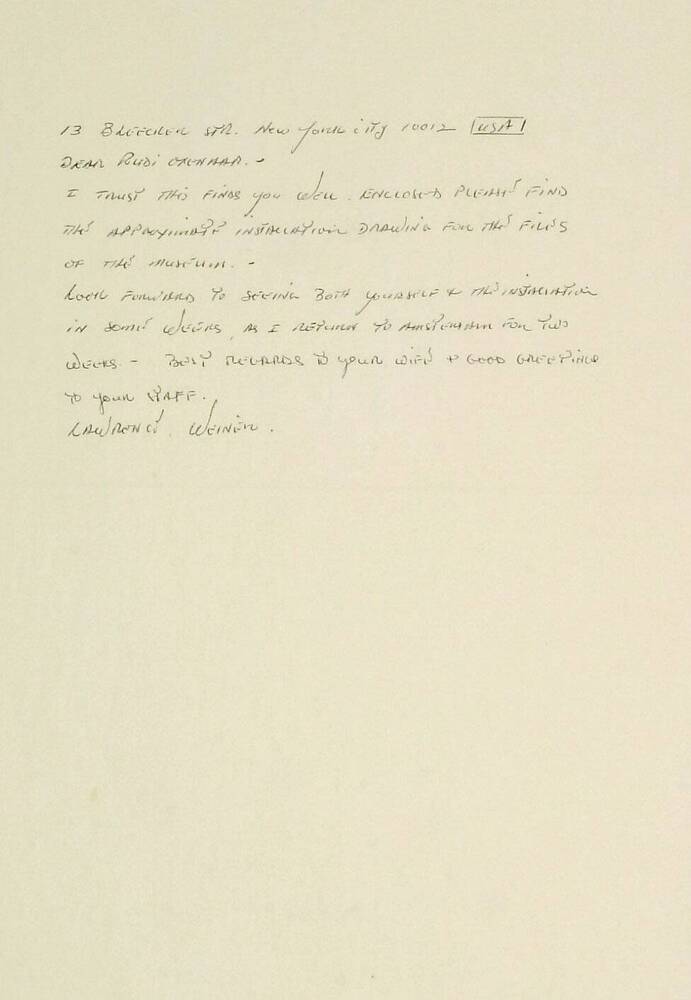 13 BLEECKER STR. New York city 10012 USA
DEAR RUDI OXENAAR. -
I TRUST THIS FINDS you WELL. ENCLOSED PLEASE FIND
THE APPROXIMATE INSTALLATION DRAWING FOR THE FILES
OF THE MUSEUM. -
LOOK FORWARD TO SEEING BOTH YOURSELF & THE INSTALLATION
IN SOME WEEKS, AS I RETURN TO AMSTERDAM FOR TWO
WEEKS. - BEST REGARDS TO YOUR WIFE + GOOD GREETINGS
TO YOUR STAFF.
LAWRENCE WEINER.